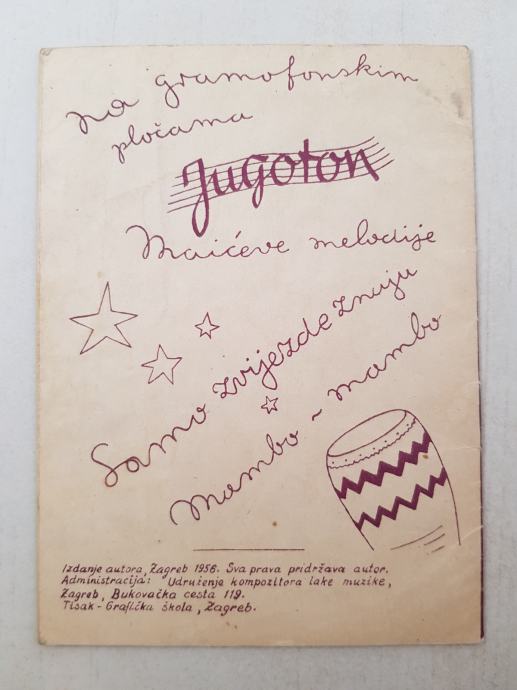 na gramofonskim
pločama
Jugoton
Maićeve melodije
Samo zvijezde znaju
Mambo ~ mambo
Izdanje autora, Zagreb 1956. Sva prava pridržava autor.
Administracija: Udruženje kompozitora lake muzike,
Zagreb, Bukovačka cesta 119.
Tisak - Grafička škola, Zagreb.